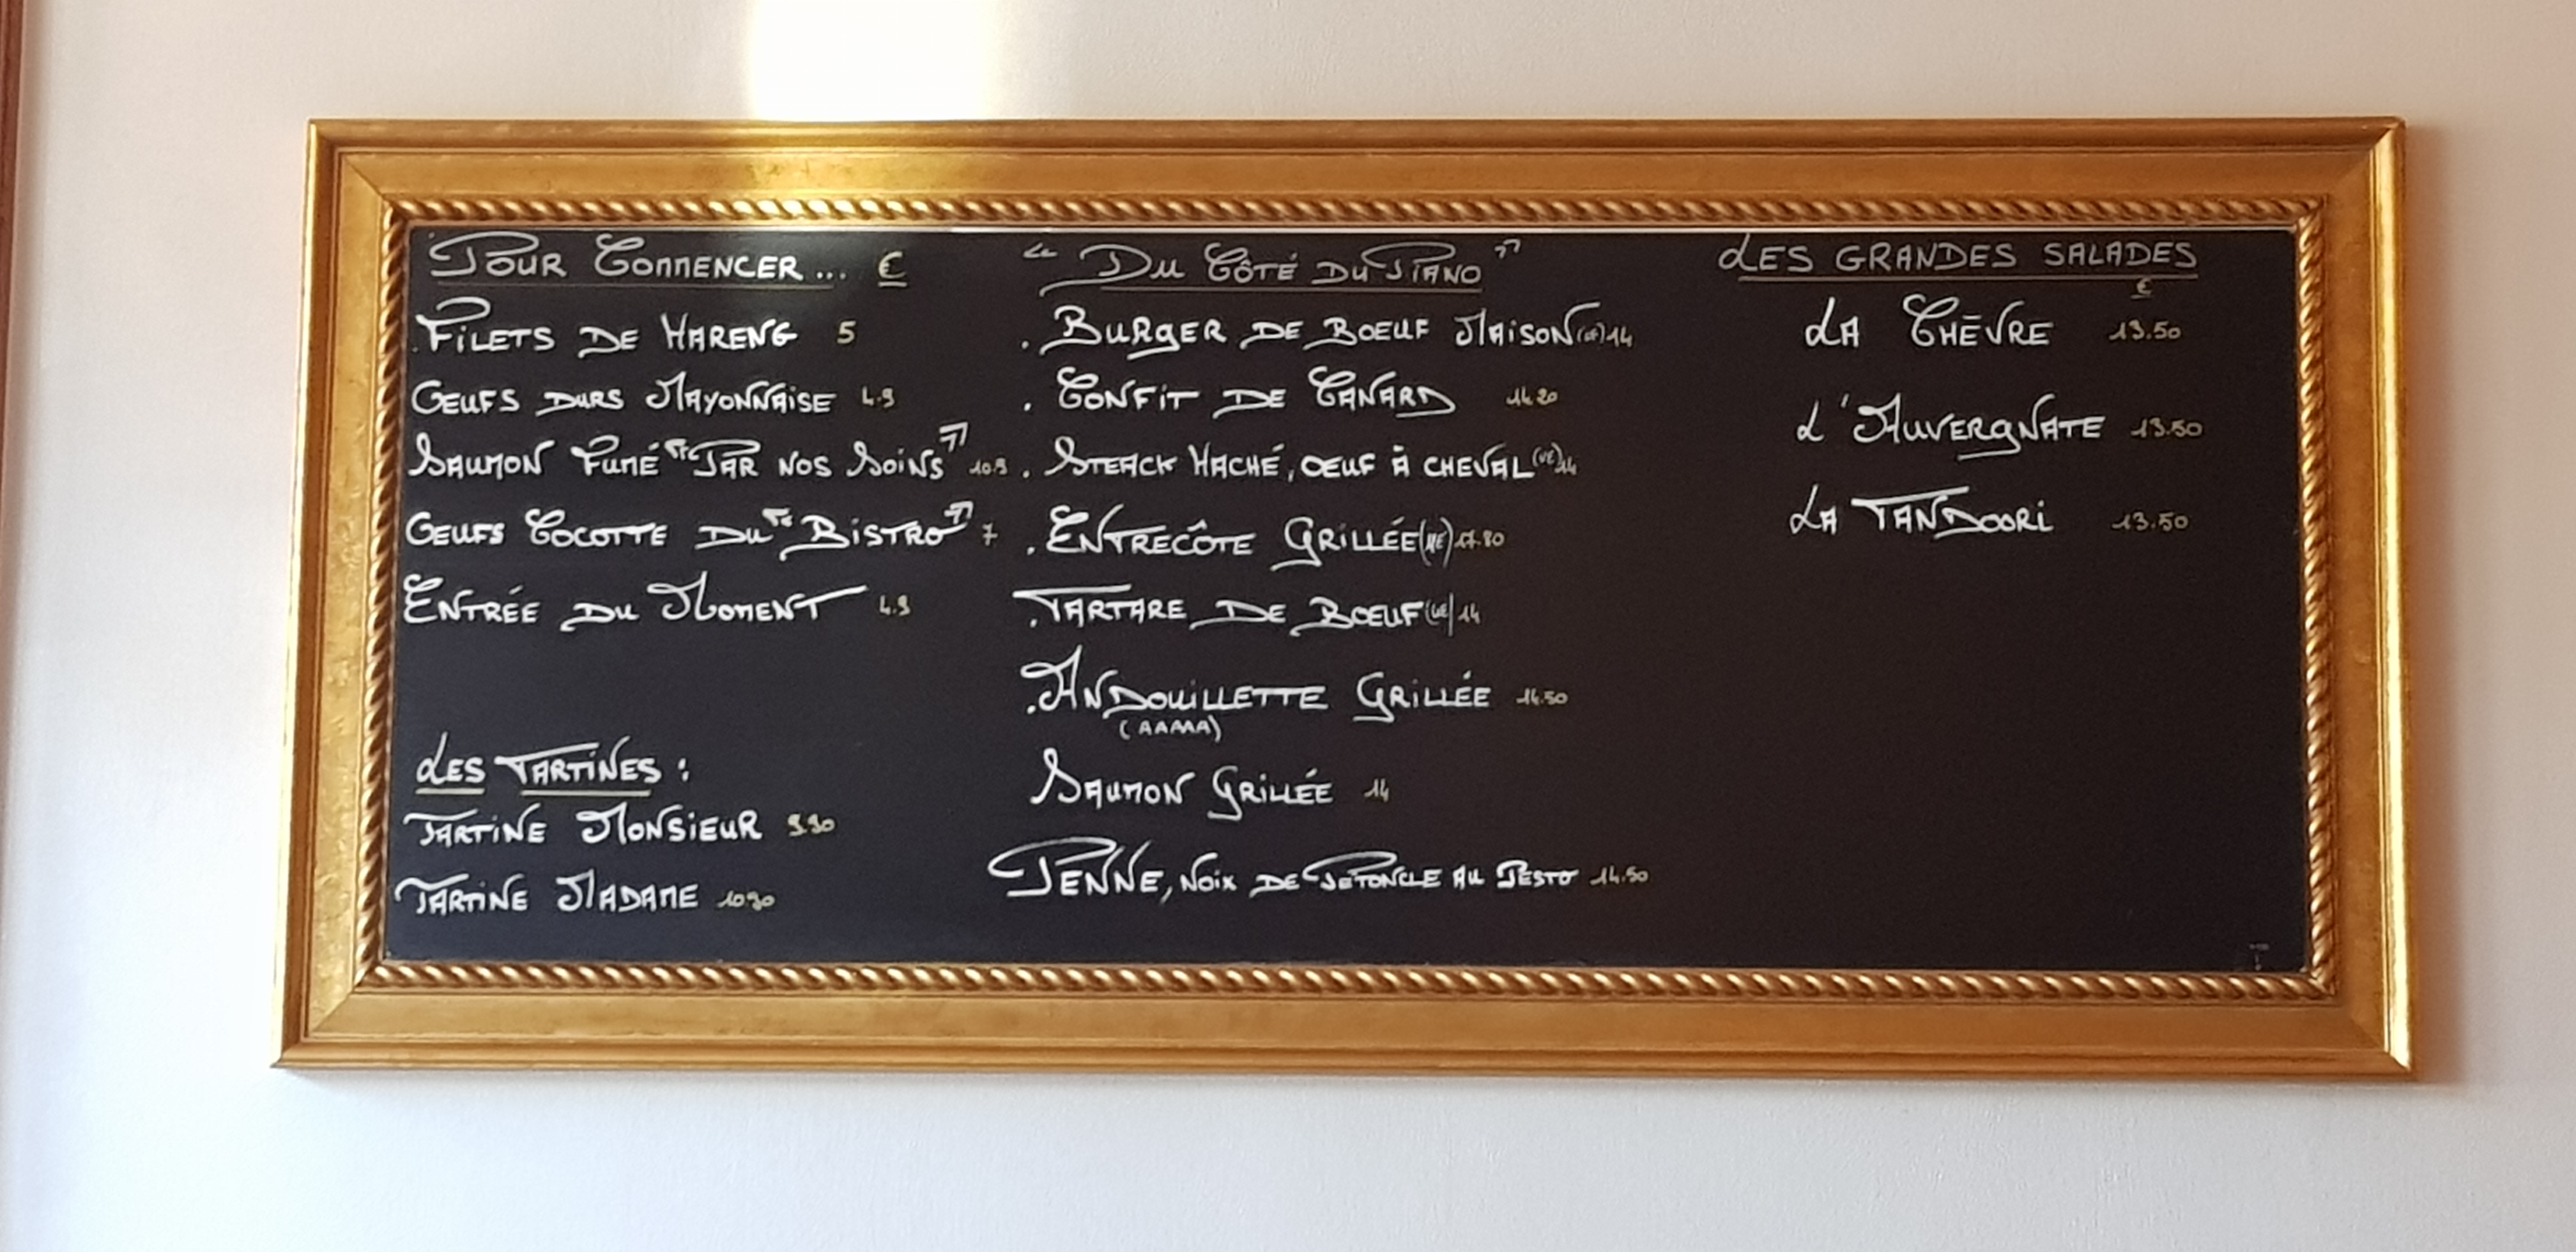 Pour Commencer... €
Filets de Hareng 5
Oeufs durs Mayonnaise 4.9
Saumon Fumé "Par nos Soins" 10.9
Oeufs Cocotte du "Bistro" 7
Entrée du Moment 4.9
Les Tartines :
Tartine Monsieur 9.90
Tartine Madame 10.90
"Du Côté du Piano"
. Burger de Boeuf Maison 14
. Confit de Canard 14.20
. Steack Haché, oeuf à cheval (VF) 14
. Entrecôte Grillée 17.80
. Tartare de Boeuf 14
. Andouillette Grillée 14.50
(AAAAA)
Saumon Grillée 14
Penne, Noix de Petoncle au Pesto 14.50
Les Grandes Salades
€
La Chèvre 13.50
L'Auvergnate 13.50
La Tandoori 13.50